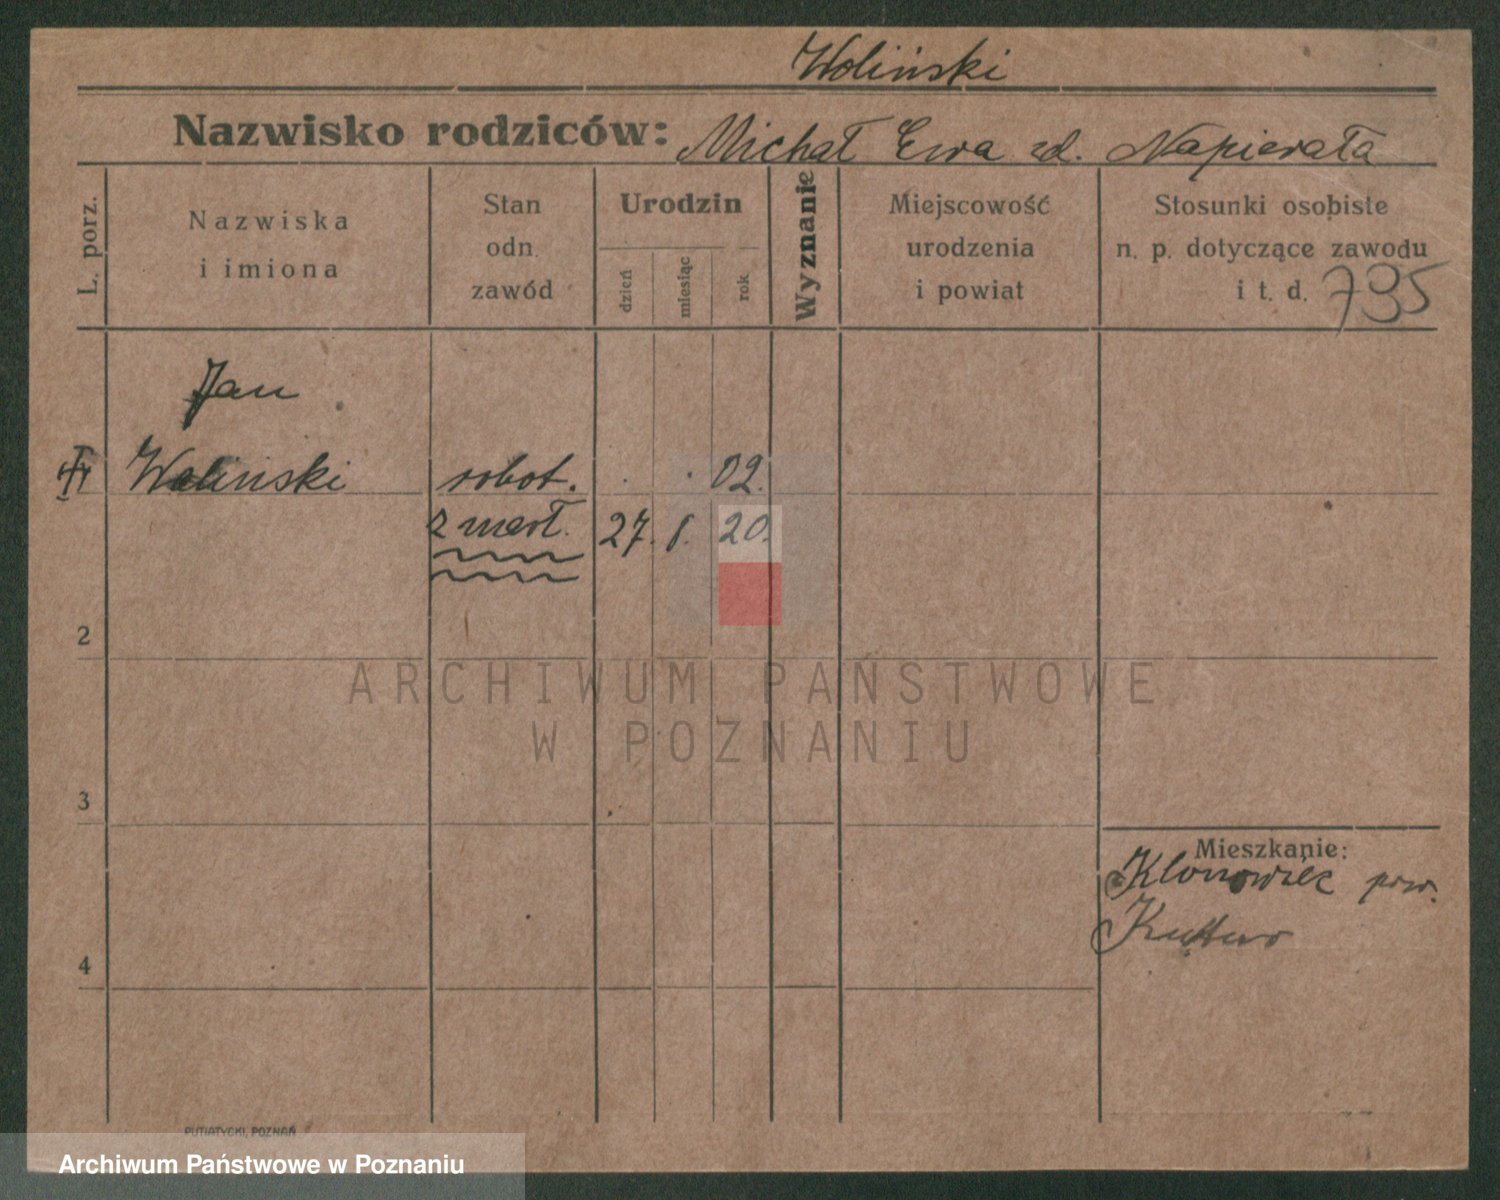 Woliński
Nazwisko rodziców: Michał Ewa zd. Napierała
L. porz.
Nazwiska
i imiona
Stan
odn.
zawód
Urodzin
dzień
miesiąc
rok
Wyznanie
Miejscowość
urodzenia
i powiat
Stosunki osobiste
n. p. dotyczące zawodu
i t. d. 735
Jan
Woliński robot. . . 02.
zmarł. 27. 8. 20.
2
3
4
Mieszkanie:
Klonowiec pow.
Kutno
ARCHIWUM PAŃSTWOWE
W POZNANIU
PUTIATYCKI, POZNAŃ
Archiwum Państwowe w Poznaniu